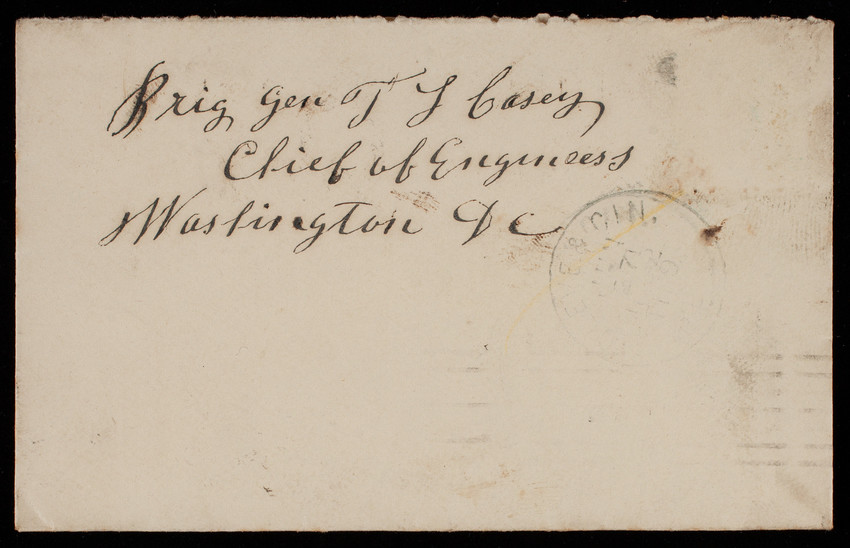 Brig Gen T L Casey
Chief of Engineers
Washington DC
& CIN.